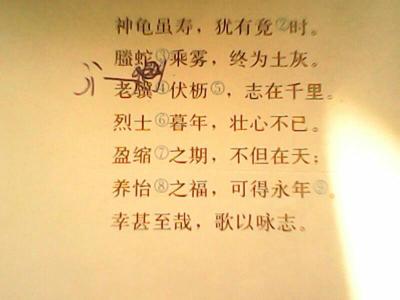 神龟虽寿，犹有竟②时。
螣蛇③乘雾，终为土灰。
老骥④伏枥⑤，志在千里。
烈士⑥暮年，壮心不已。
盈缩⑦之期，不但在天；
养怡⑧之福，可得永年⑨。
幸甚至哉，歌以咏志。